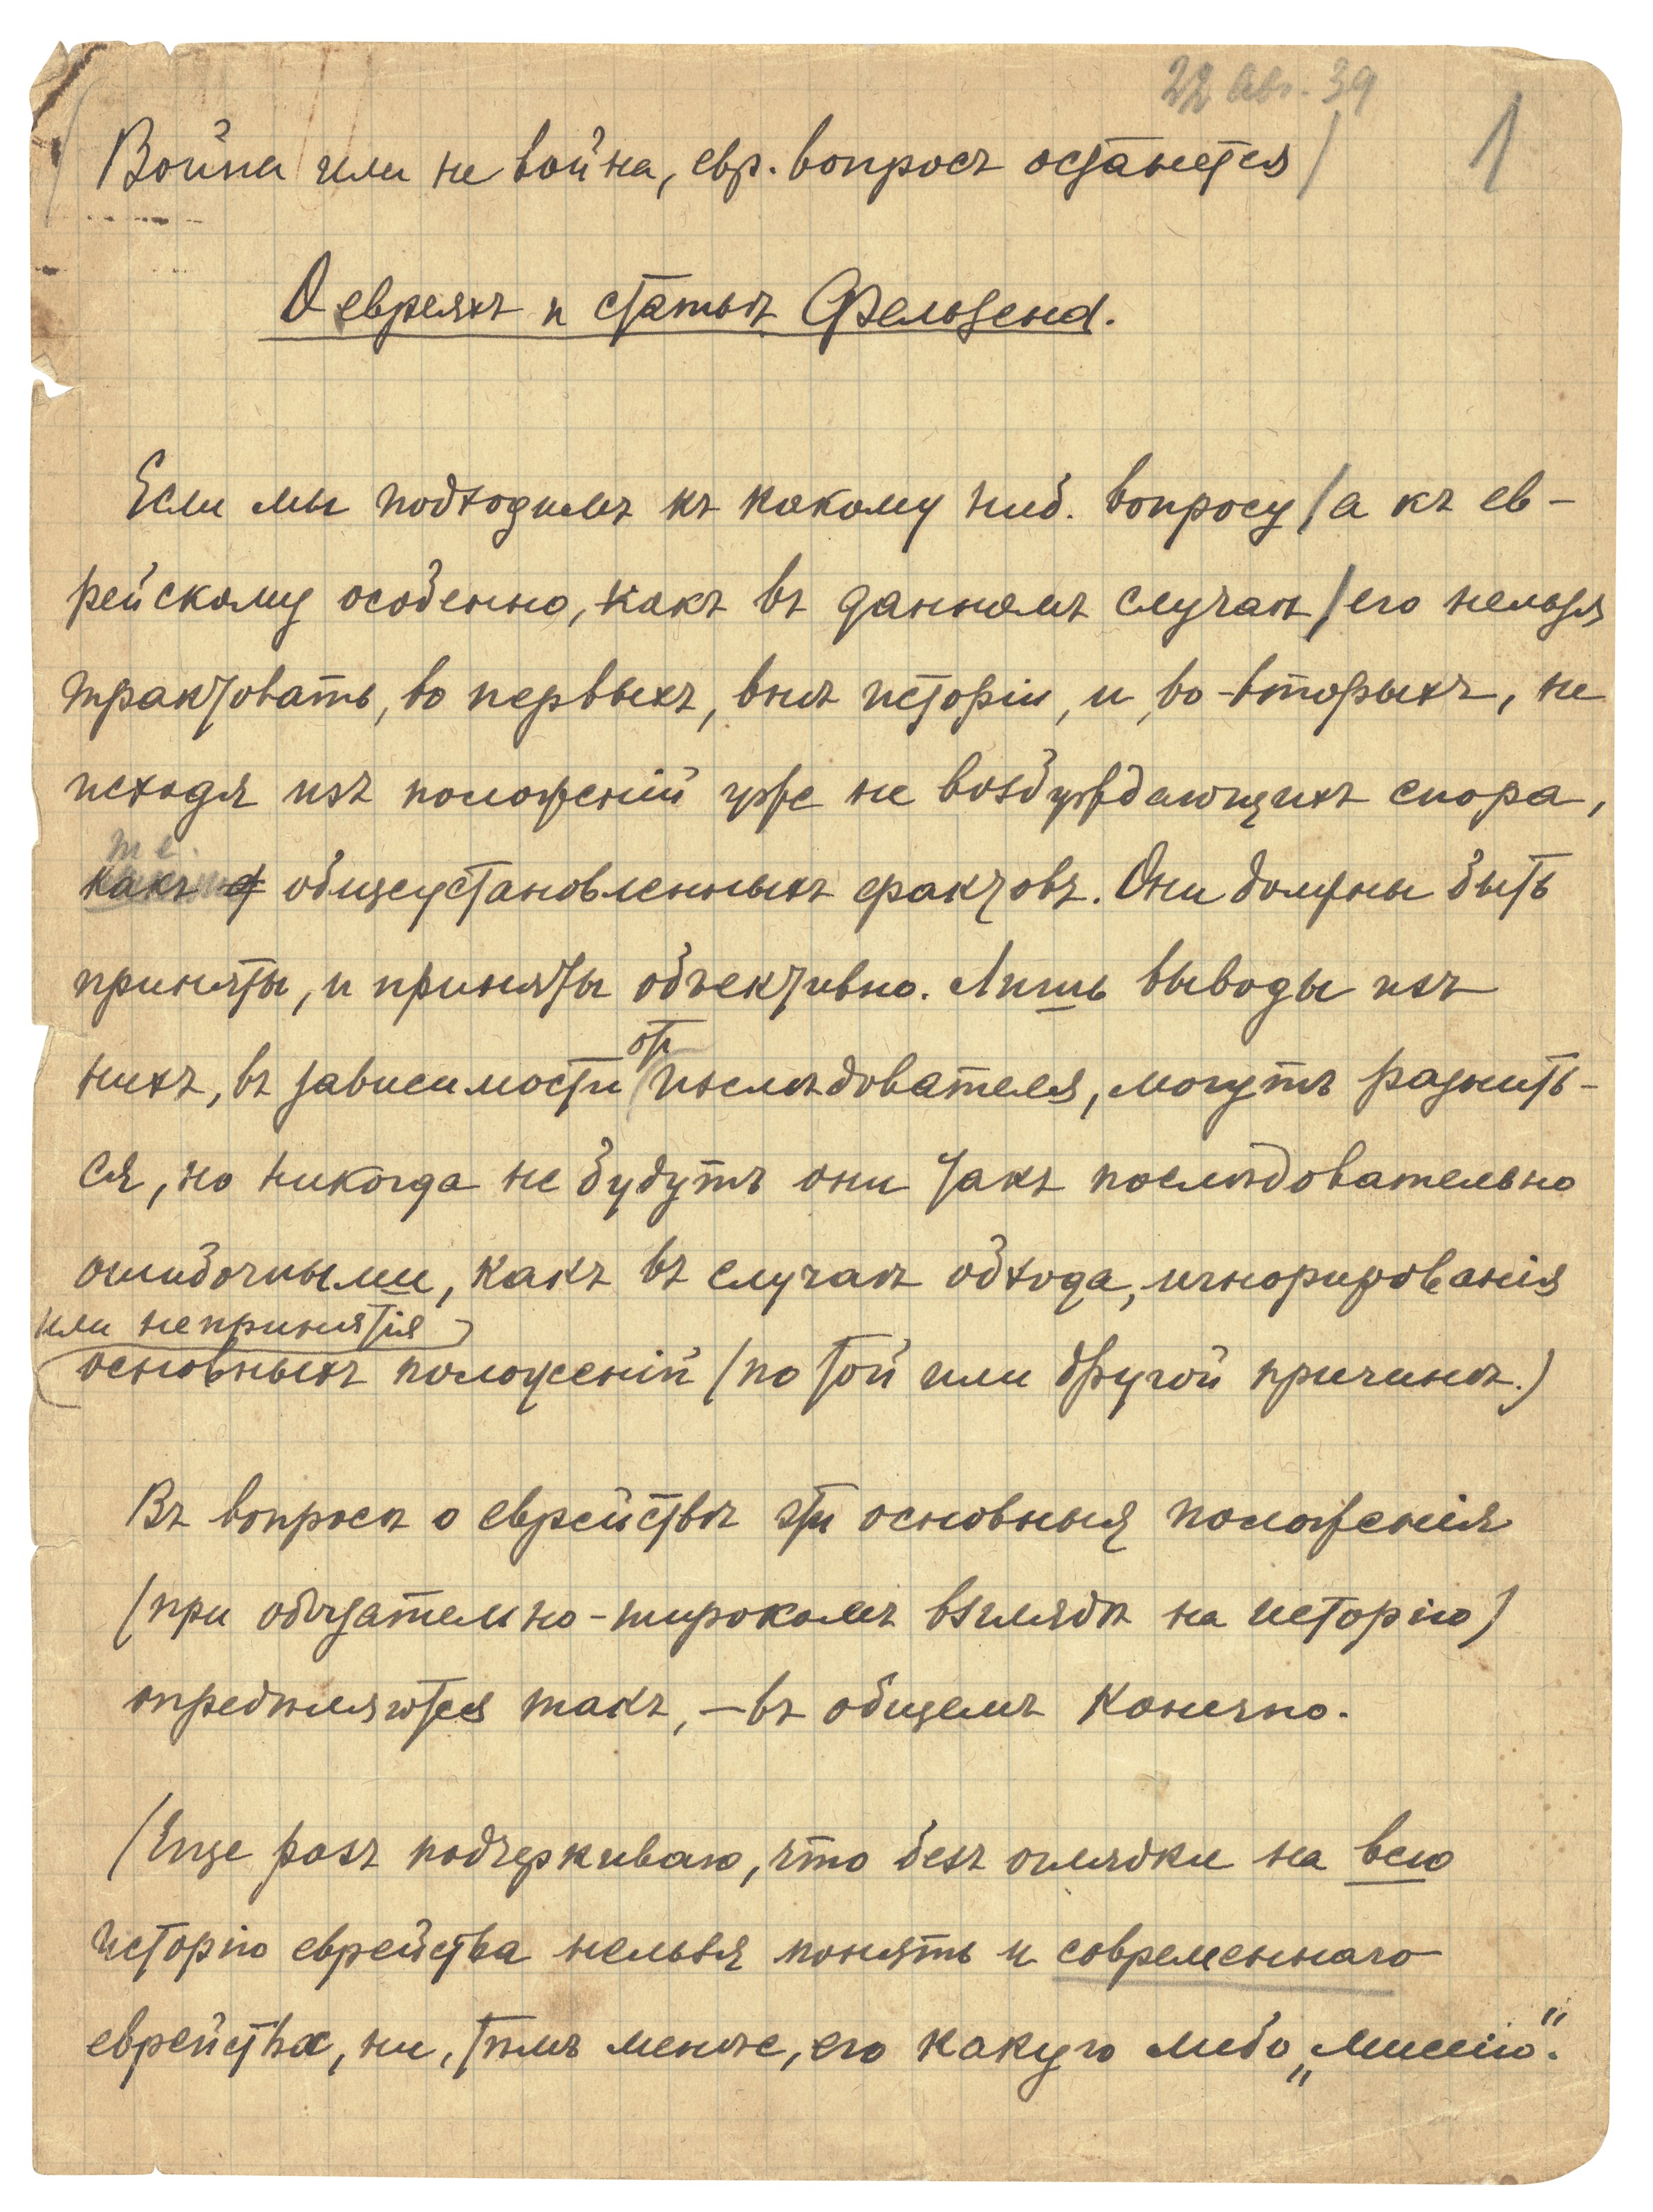 22 Авг. 39
1
(Война или не война, евр. вопросъ останется)
О евреяхъ и статьѣ Фельзена.
Если мы подходимъ къ какому ниб. вопросу (а къ ев-
рейскому особенно, какъ въ данномъ случаѣ) его нельзя
трактовать, во первыхъ, внѣ исторіи, и, во-вторыхъ, не
исходя изъ положеній уже не возбуждающихъ спора,
т е.
какъ общеустановленныхъ фактовъ. Они должны быть
приняты, и приняты объективно. Лишь выводы изъ
нихъ, въ зависимости от изслѣдователя, могутъ разнить-
ся, но никогда не будутъ они такъ послѣдовательно
ошибочными, какъ въ случаѣ обхода, игнорированія
или непринятія
основныхъ положеній (по той или другой причинѣ.)
Въ вопросѣ о еврействѣ эти основныя положенія
(при обязательно-широкомъ взглядѣ на исторію)
опредѣляются такъ, — въ общемъ конечно.
(Еще разъ подчеркиваю, что безъ оглядки на всю
исторію еврейства нельзя понять и современнаго
еврейства, ни, тѣмъ менѣе, его какую либо „миссію".